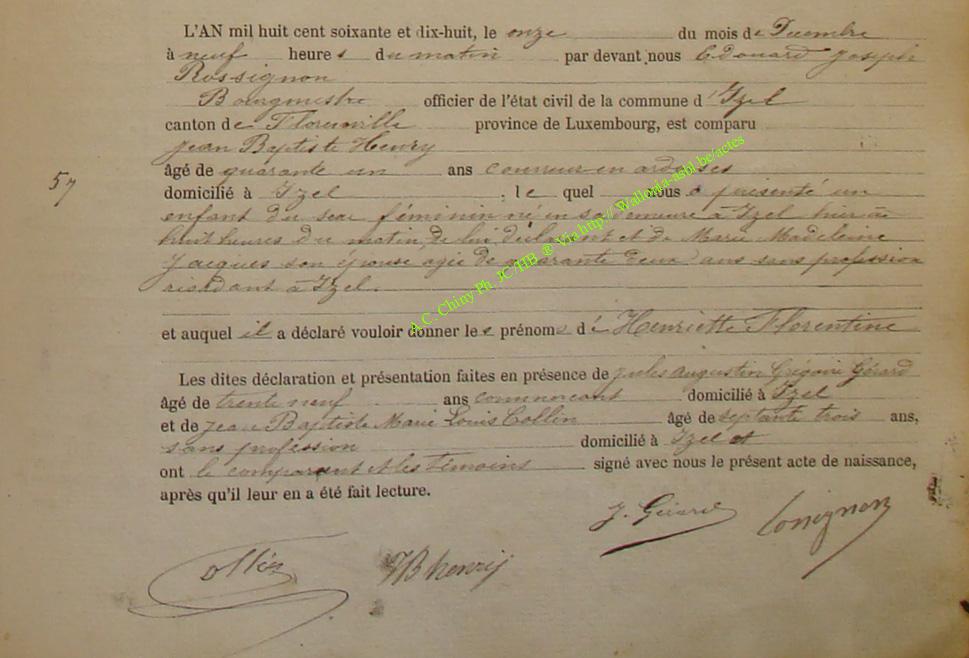 L'AN mil huit cent soixante et dix-huit, le onze du mois de Décembre
à neuf heures du matin par devant nous Edouard Joseph
Rossignon
Bourgmestre officier de l'état civil de la commune d'Izel
canton de Florenville province de Luxembourg, est comparu
Jean Baptiste Henry
âgé de quarante un ans couvreur en ardoises
57
domicilié à Izel, lequel nous a présenté un
enfant du sexe féminin né en sa demeure à Izel hier à
huit heures du matin, de lui déclarant et de Marie Madeleine
Jacques son épouse agée de quarante deux ans sans profession
résidant à Izel.
et auquel il a déclaré vouloir donner les prénoms de Henriette Florentine
Les dites déclaration et présentation faites en présence de Jules Augustin Grégoire Gérard
âgé de trente neuf ans commerçant domicilié à Izel
et de Jean Baptiste Marie Louis Collin âgé de septante trois ans,
sans profession domicilié à Izel et
ont le comparant et les témoins signé avec nous le présent acte de naissance,
après qu'il leur en a été fait lecture.
J. Gérard Rossignon
Collin JB henry
A.C. Chiny Ph. JC/HB @ Via http://Wallonia-asbl.be/actes